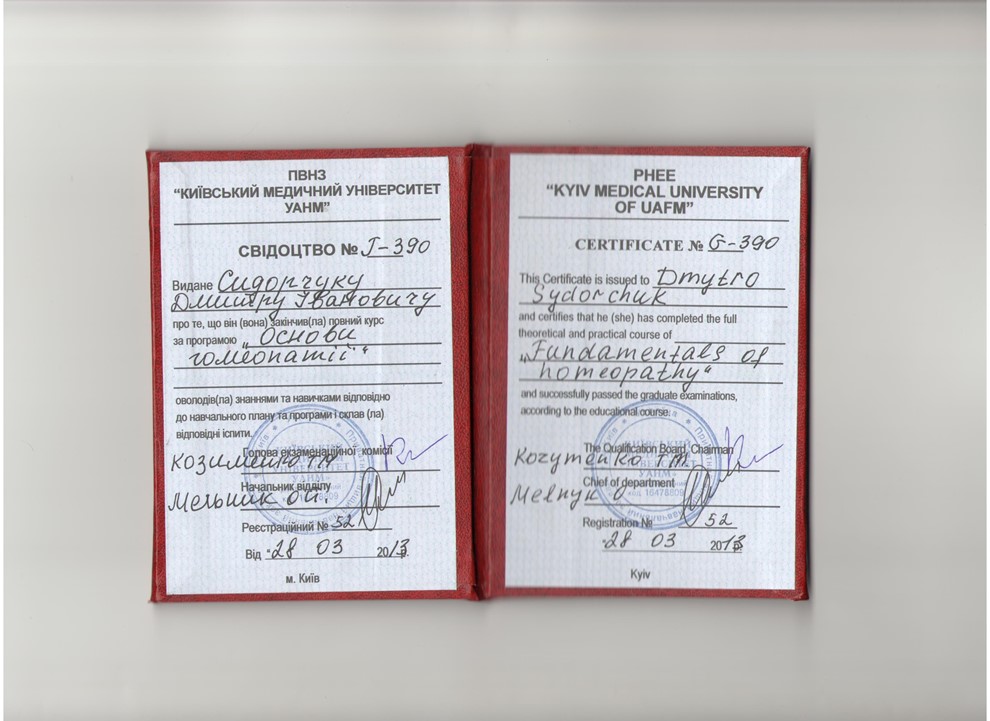 ПВНЗ
“КИЇВСЬКИЙ МЕДИЧНИЙ УНІВЕРСИТЕТ
УАНМ”
СВІДОЦТВО № Г-390
Видане Сидорчуку
Дмитру Івановичу
про те, що він (вона) закінчив(ла) повний курс
за програмою „Основи
гомеопатії“
оволодів(ла) знаннями та навичками відповідно
до навчального плану та програми і склав (ла)
відповідні іспити.
Голова екзаменаційної комісії
Начальник відділу
Мельник
Реєстраційний № 52
Від "28 03 2013р.
м. Київ
PHEE
“KYIV MEDICAL UNIVERSITY
OF UAFM”
CERTIFICATE № G-390
This Certificate is issued to Dmytro
Sydorchuk
and certifies that he (she) has completed the full
theoretical and practical course of
„Fundamentals of
homeopathy“
and successfully passed the graduate examinations,
according to the educational course.
The Qualification Board, Chairman
Chief of department
Melnyk O
Registration № 52
"28 03 2013
Kyiv